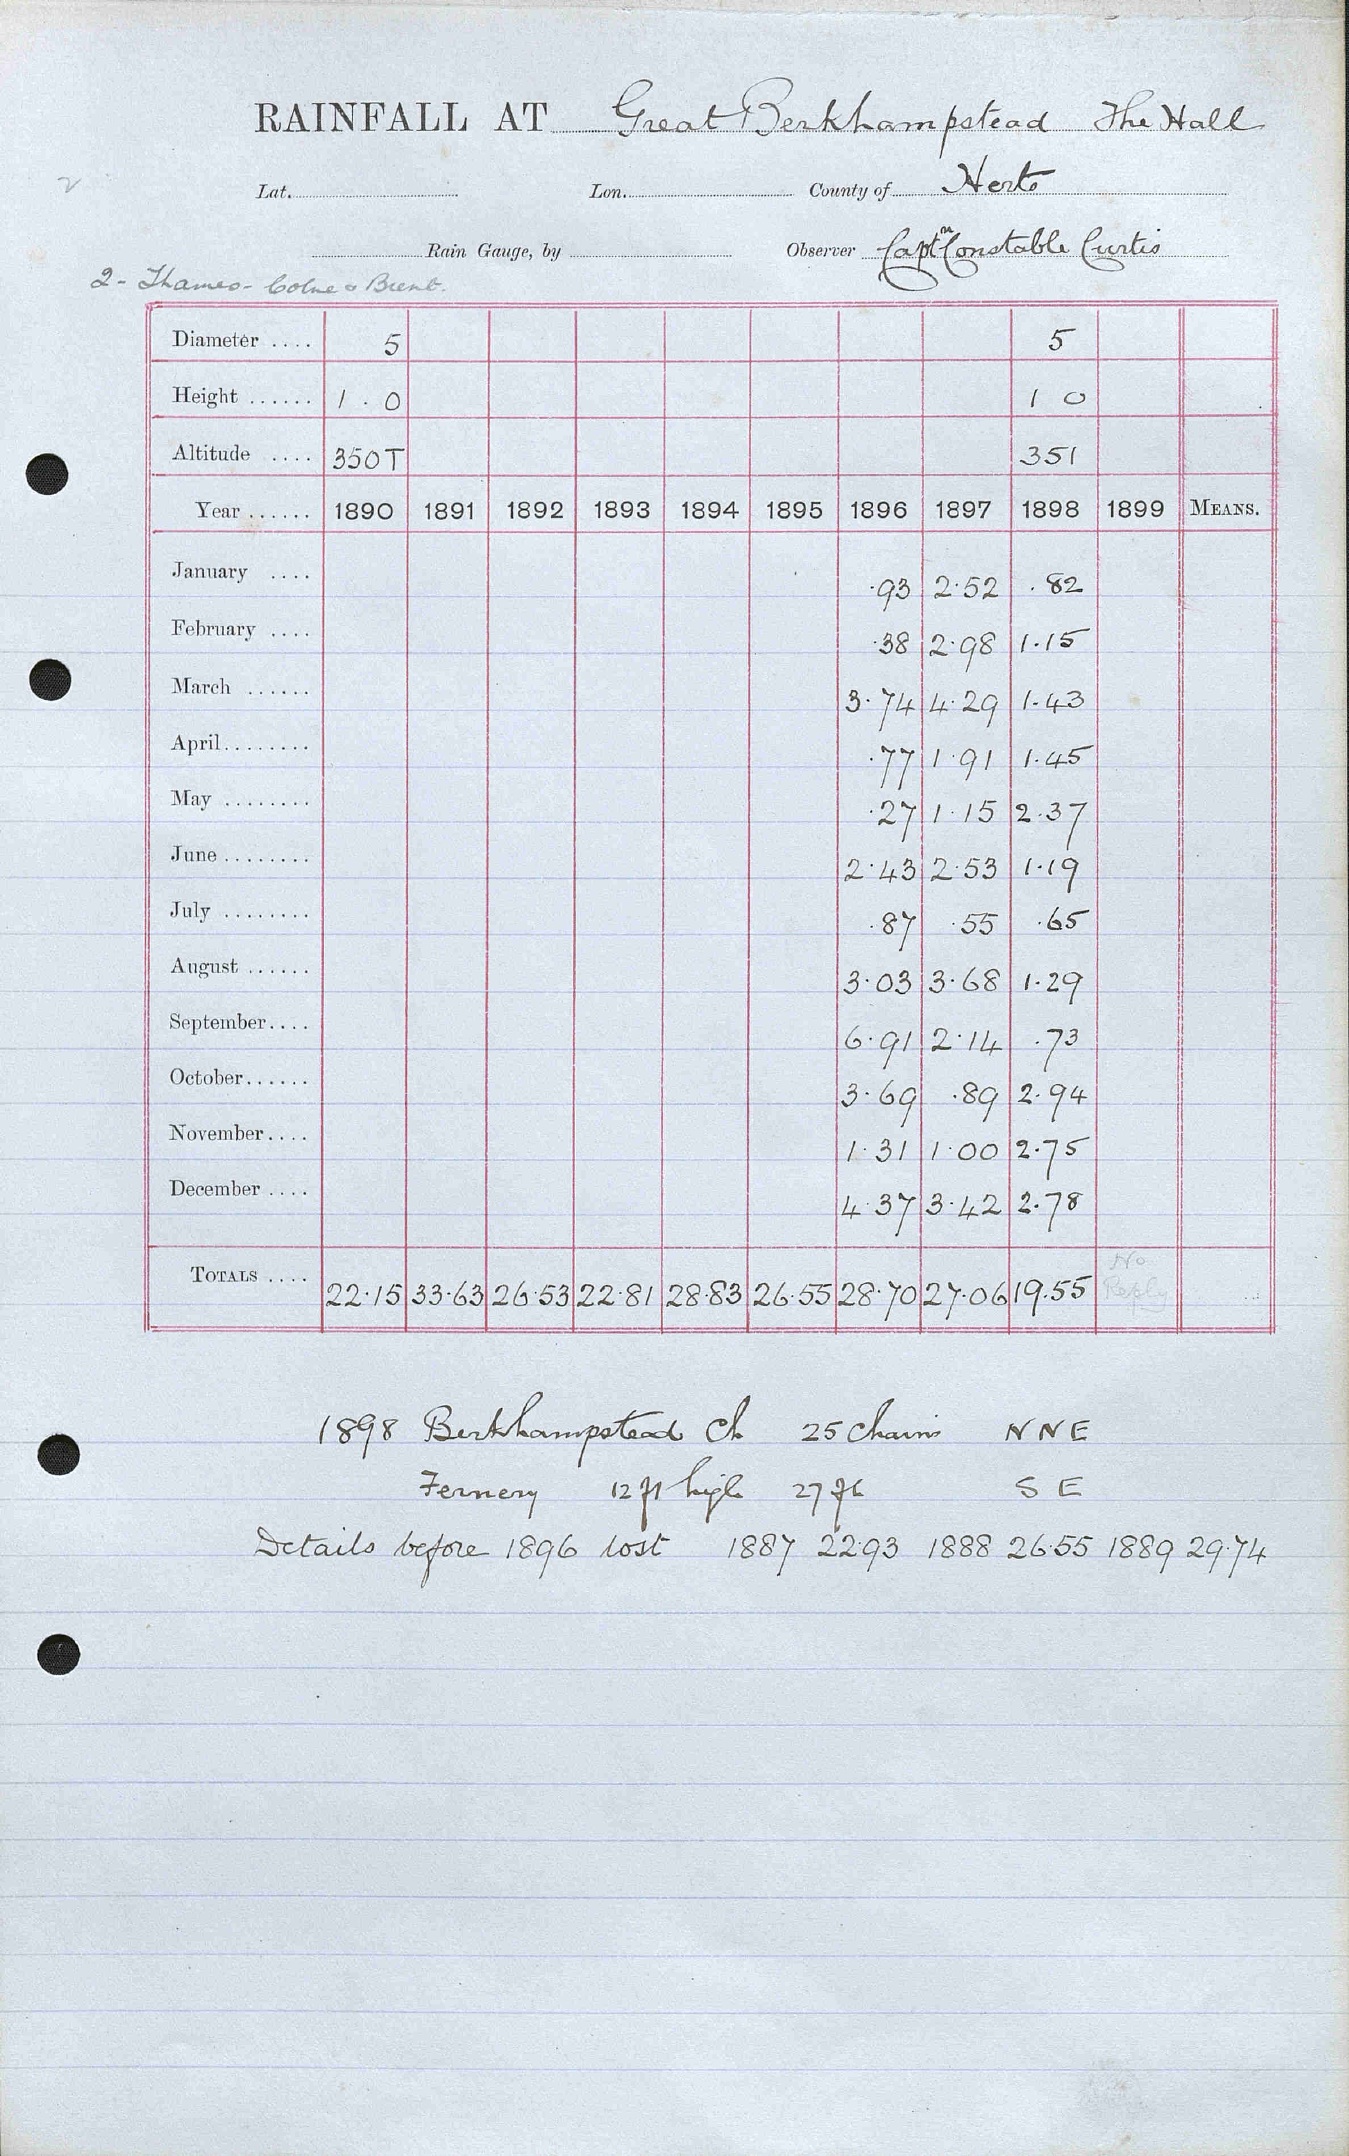 RAINFALL AT Great Berkhampstead The Hall
Lat. Lon. County of Herts
Rain Gauge, by Observer Captn Constable Curtis
2 - Thames - Colne & Brent.
Diameter .... 5 5
Height ...... 1 . 0 1 0
Altitude .... 350T 351
Year ...... 1890 1891 1892 1893 1894 1895 1896 1897 1898 1899 MEANS.
January .... .93 2.52 .82
February .... .38 2.98 1.15
March ...... 3.74 4.29 1.43
April........ .77 1.91 1.45
May ........ .27 1.15 2.37
June ........ 2.43 2.53 1.19
July ........ .87 .55 .65
August ...... 3.03 3.68 1.29
September.... 6.91 2.14 .73
October...... 3.69 .89 2.94
November.... 1.31 1.00 2.75
December .... 4.37 3.42 2.78
TOTALS .... 22.15 33.63 26.53 22.81 28.83 26.55 28.70 27.06 19.55 No Reply
1898 Berkhampstead Ch 25 Chains N N E
Fernery 12 ft high 27 ft S E
Details before 1896 lost 1887 22.93 1888 26.55 1889 29.74